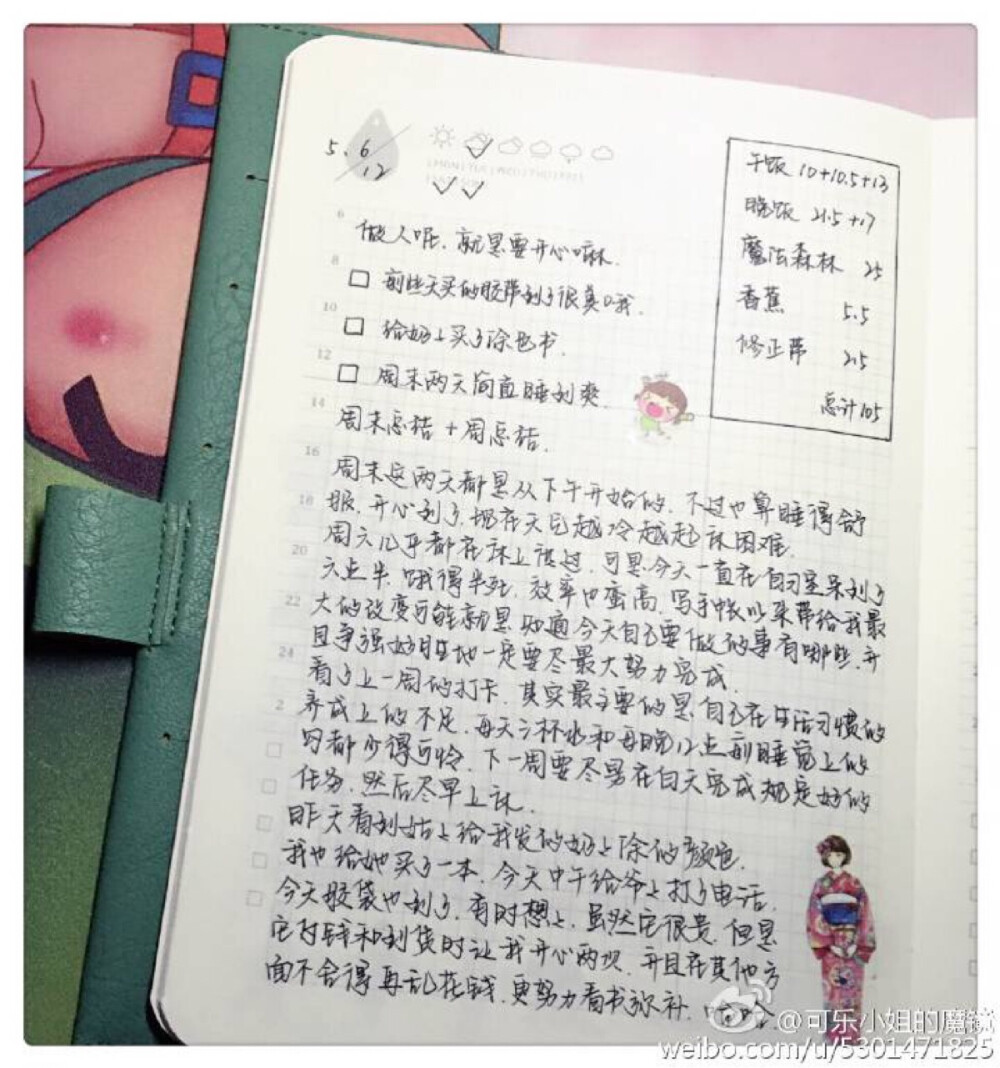 5、6
12
午饭 10+10.5+13
晚饭 21.5+17
魔法森林 25
香蕉 5.5
修正带 2.5
总计105
6
做人呢、就是要开心嘛.
8
前些天买的胶带到了很美哦.
10
给奶奶买了涂色书.
12
周末两天简直睡到爽.
14
周末总结+周总结.
16
周末这两天都是从下午开始的、不过也算睡得舒
18
服、开心到了、现在天气越冷越起床困难.
周六几乎都在床上度过、可是今天一直在自习室呆到了
20
六点半、饿得半死、效率也蛮高、写手帐以来带给我最
22
大的改变可能就是知道今天自己要做的事有哪些、并
且争强好胜地一定要尽最大努力完成.
24
看了上一周的打卡、其实最主要的是自己在生活习惯的
2
养成上的不足、每天六杯水和每晚12点前睡觉上的
勾都少得可怜、下一周要尽量在白天完成规定好的
任务、然后尽早上床.
昨天看到姑姑给我发的奶奶涂的颜色.
我也给她买了一本、今天中午给爷爷打了电话.
今天胶袋也到了、有时想想、虽然它很贵、但是
它付钱和到货时让我开心两次、并且在其他方
面不舍得再乱花钱、更努力看书弥补、哈哈
@可乐小姐的魔镜
weibo.com/u/5301471825